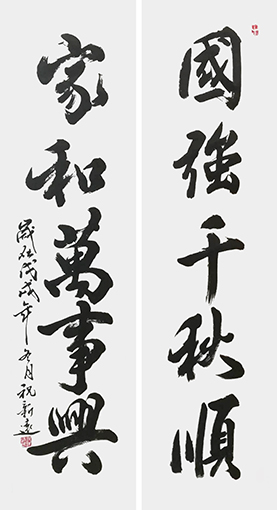 國強千秋順
家和萬事興
歲在戊戌年冬月祝新遠